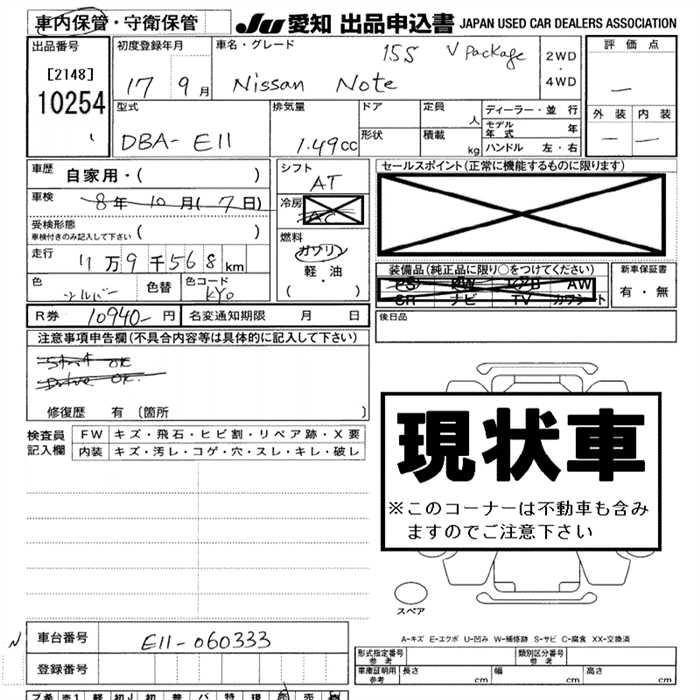 車内保管・守衛保管 JU 愛知 出品申込書 JAPAN USED CAR DEALERS ASSOCIATION
出品番号 初度登録年月 車名・グレード 15S V package 2WD ・ 4WD 評価点
[2148] 17 9月 Nissan Note
10254 外装 内装
型式 排気量 ドア 定員 人 ディーラー・並行
DBA-E11 1.49cc 形状 積載 kg モデル年式 年
ハンドル 左・右
車歴 自家用・( ) シフト AT セールスポイント(正常に機能するものに限ります)
車検 8年10月(7日) 冷房 AC
受検形態 ( )
車検付きのみ記入して下さい
燃料 ガソリン 軽・油 ( )
走行 11万9千568km 装備品(純正品に限り○をつけてください) 新車保証書
色 シルバー 色替 色コード KY0 PS PW エアB AW 有・無
SR ナビ TV カワシート
R券 10940-円 名変通知期限 月 日 後日品
注意事項申告欄(不具合内容等は具体的に記入して下さい)
Start OK
Drive OK.
修復歴 有 〔箇所 〕
検査員 FW キズ・飛石・ヒビ割・リペア跡・X要
記入欄 内装 キズ・汚レ・コゲ・穴・スレ・キレ・破レ
現状車
※このコーナーは不動車も含み
ますのでご注意下さい
スペア
A-キズ E-エクボ U-凹み W-補修跡 S-サビ C-腐食 XX-交換済
N 車台番号 E11-060333
登録番号
型式指定番号 参考 類別区分番号 参考
車庫証明用 参考 長さ cm 幅 cm 高さ cm